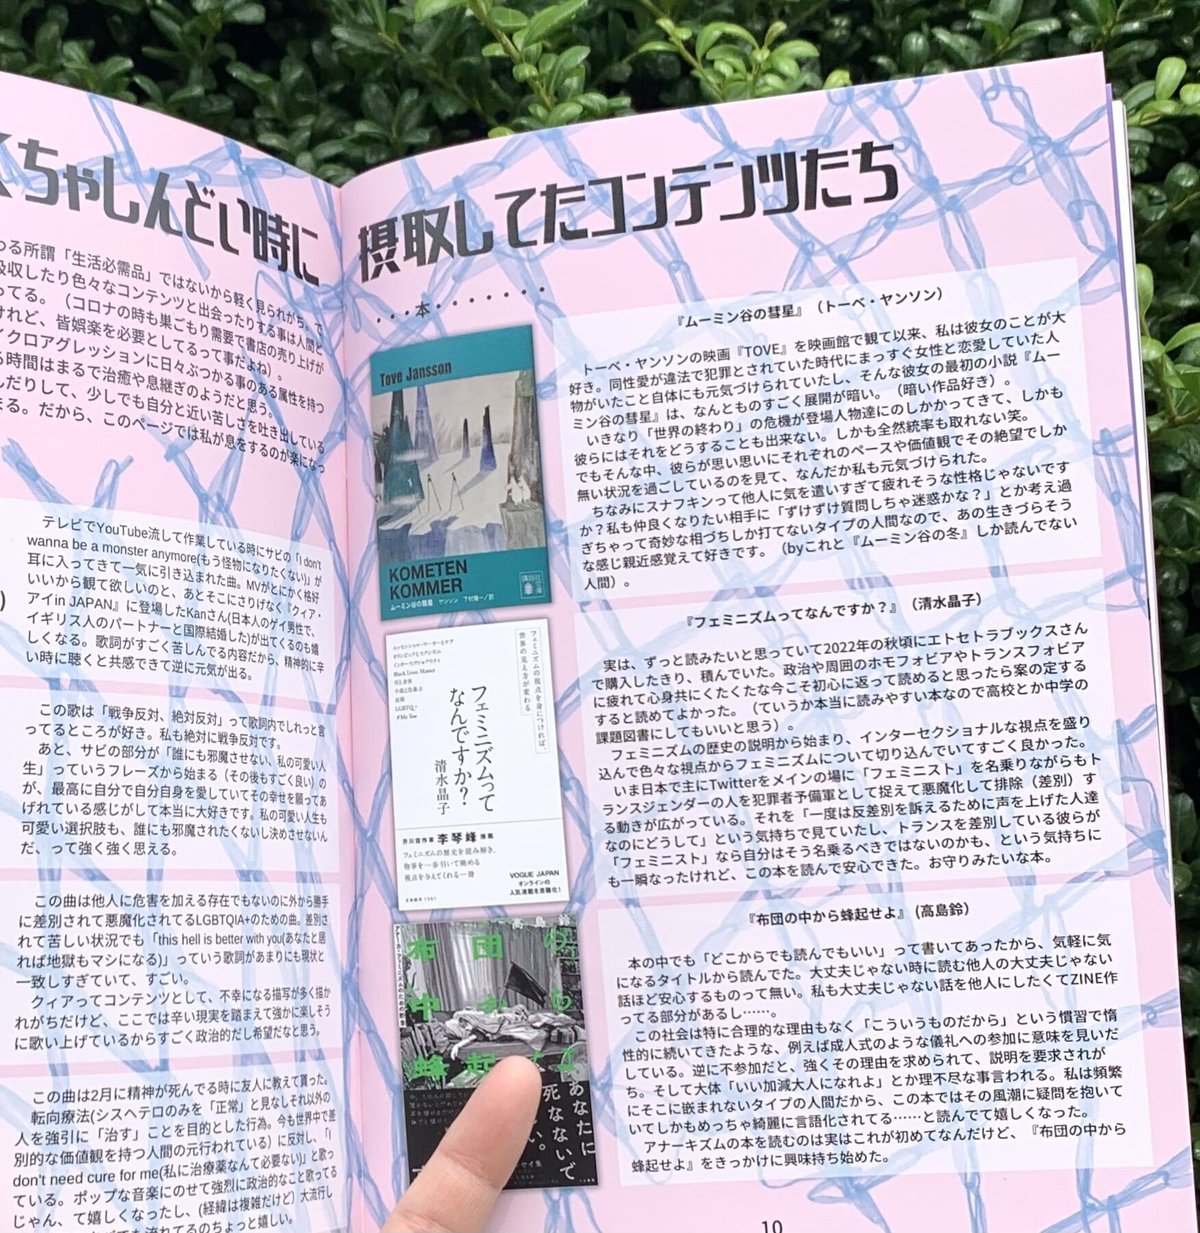 くちゃしんどい時に
わる所謂「生活必需品」ではないから軽く見られがち。で
吸収したり色々なコンテンツと出会ったりする事は人間と
ってる。（コロナの時も巣ごもり需要で書店の売り上げが
けれど、皆娯楽を必要としてるって事だよね）。
イクロアグレッションに日々ぶつかる事のある属性を持つ
る時間はまるで治癒や息継ぎのようだと思う。
しだりして、少しでも自分と近い苦しさを吐き出している
まる。だから、このページでは私が息をするのが楽になっ
テレビでYouTube流して作業している時にサビの「I don't
wanna be a monster anymore(もう怪物になりたくない)」が
耳に入ってきて一気に引き込まれた曲。MVがとにかく格好
いいから観て欲しいのと、あとそこにさりげなく『クィア・
アイin JAPAN』に登場したKanさん(日本人のゲイ男性で、
イギリス人のパートナーと国際結婚した)が出てくるのも嬉
しくなる。歌詞がすごく苦しんでる内容だから、精神的に辛
い時に聴くと共感できて逆に元気が出る。
この歌は「戦争反対、絶対反対」って歌詞内でしれっと言
ってるところが好き。私も絶対に戦争反対です。
あと、サビの部分が「誰にも邪魔させない、私の可愛い人
生」っていうフレーズから始まる（その後もすごく良い）の
が、最高に自分で自分自身を愛していてその幸せを願ってあ
げれている感じがして本当に大好きです。私の可愛い人生も
可愛い選択肢も、誰にも邪魔されたくないし決めさせないん
だ、って強く強く思える。
この曲は他人に危害を加える存在でもないのに外から勝手
に差別されて悪魔化されてるLGBTQIA+のための曲。差別さ
れて苦しい状況でも「this hell is better with you(あなたと居
れば地獄もマシになる)」っていう歌詞があまりにも現状と
一致しすぎていて、すごい。
クィアってコンテンツとして、不幸になる描写が多く描か
れがちだけど、ここでは辛い現実を踏まえて強かに楽しそう
に歌い上げているからすごく政治的だし希望だなと思う。
この曲は2月に精神が死んでる時に友人に教えて貰った。
転向療法(シスヘテロのみを「正常」と見なしそれ以外の
人を強引に「治す」ことを目的とした行為。今も世界中で差
別的な価値観を持つ人間の元行われている）に反対し、「I
don't need cure for me(私に治療薬なんて必要ない)」と歌っ
ている。ポップな音楽にのせて強烈に政治的なこと歌ってる
じゃん、て嬉しくなったし、(経緯は複雑だけど）大流行し
摂取してたコンテンツたち
・・・・本・・・・・・・
Tove Jansson
KOMETEN
KOMMER
ムーミン谷の彗星 ヤンソン 下村隆一／訳
講談社文庫
『ムーミン谷の彗星』（トーベ・ヤンソン）
トーベ・ヤンソンの映画『TOVE』を映画館で観て以来、私は彼女のことが大
好き。同性愛が違法で犯罪とされていた時代にまっすぐ女性と恋愛していた人
物がいたこと自体にも元気づけられていたし、そんな彼女の最初の小説『ムー
ミン谷の彗星』は、なんとものすごく展開が暗い。（暗い作品好き）。
いきなり「世界の終わり」の危機が登場人物達にのしかかってきて、しかも
彼らにはそれをどうすることも出来ない。しかも全然統率も取れない笑。
でもそんな中、彼らが思い思いにそれぞれのペースや価値観でその絶望でしか
無い状況を過ごしているのを見て、なんだか私も元気づけられた。
ちなみにスナフキンって他人に気を遣いすぎて疲れそうな性格じゃないです
か？私も仲良くなりたい相手に「ずけずけ質問しちゃ迷惑かな？」とか考え過
ぎちゃって奇妙な相づちしか打てないタイプの人間なので、あの生きづらそう
な感じ親近感覚えて好きです。（byこれと『ムーミン谷の冬』しか読んでない
人間）。
フェミニズムの視点を身につければ、
世界の見え方が変わる
Black Lives Matter
LGBTQ+
#MeToo
フェミニズムって
なんですか？
清水晶子
芥川賞作家 李琴峰 推薦
フェミニズムの歴史を読み解き、
物事を一歩引いて眺める
視点を与えてくれる一冊
VOGUE JAPAN
オンラインの
人気連載を書籍化！
『フェミニズムってなんですか？』（清水晶子）
実は、ずっと読みたいと思っていて2022年の秋頃にエトセトラブックスさん
で購入したきり、積んでいた。政治や周囲のホモフォビアやトランスフォビア
に疲れて心身共にくたくたな今こそ初心に返って読めると思ったら案の定する
すると読めてよかった。（ていうか本当に読みやすい本なので高校とか中学の
課題図書にしてもいいと思う）。
フェミニズムの歴史の説明から始まり、インターセクショナルな視点を盛り
込んで色々な視点からフェミニズムについて切り込んでいてすごく良かった。
いま日本で主にTwitterをメインの場に「フェミニスト」を名乗りながらもト
ランスジェンダーの人を犯罪者予備軍として捉えて悪魔化して排除（差別）す
る動きが広がっている。それを「一度は反差別を訴えるために声を上げた人達
なのにどうして」という気持ちで見ていたし、トランスを差別している彼らが
「フェミニスト」なら自分はそう名乗るべきではないのかも、という気持ちに
も一瞬なったけれど、この本を読んで安心できた。お守りみたいな本。
高島鈴
布団の
中から
蜂起せよ
アナーカ・フェミニズムのための断章
あなたに
死なないで
『布団の中から蜂起せよ』（高島鈴）
本の中でも「どこからでも読んでもいい」って書いてあったから、気軽に気
になるタイトルから読んでた。大丈夫じゃない時に読む他人の大丈夫じゃない
話ほど安心するものって無い。私も大丈夫じゃない話を他人にしたくてZINE作
ってる部分があるし……。
この社会は特に合理的な理由もなく「こういうものだから」という慣習で惰
性的に続いてきたような、例えば成人式のような儀礼への参加に意味を見いだ
している。逆に不参加だと、強くその理由を求められて、説明を要求されが
ち。そして大体「いい加減大人になれよ」とか理不尽な事言われる。私は頻繁
にそこに嵌まれないタイプの人間だから、この本ではその風潮に疑問を抱いて
いてしかもめっちゃ綺麗に言語化されてる……と読んでて嬉しくなった。
アナーキズムの本を読むのは実はこれが初めてなんだけど、『布団の中から
蜂起せよ』をきっかけに興味持ち始めた。
10